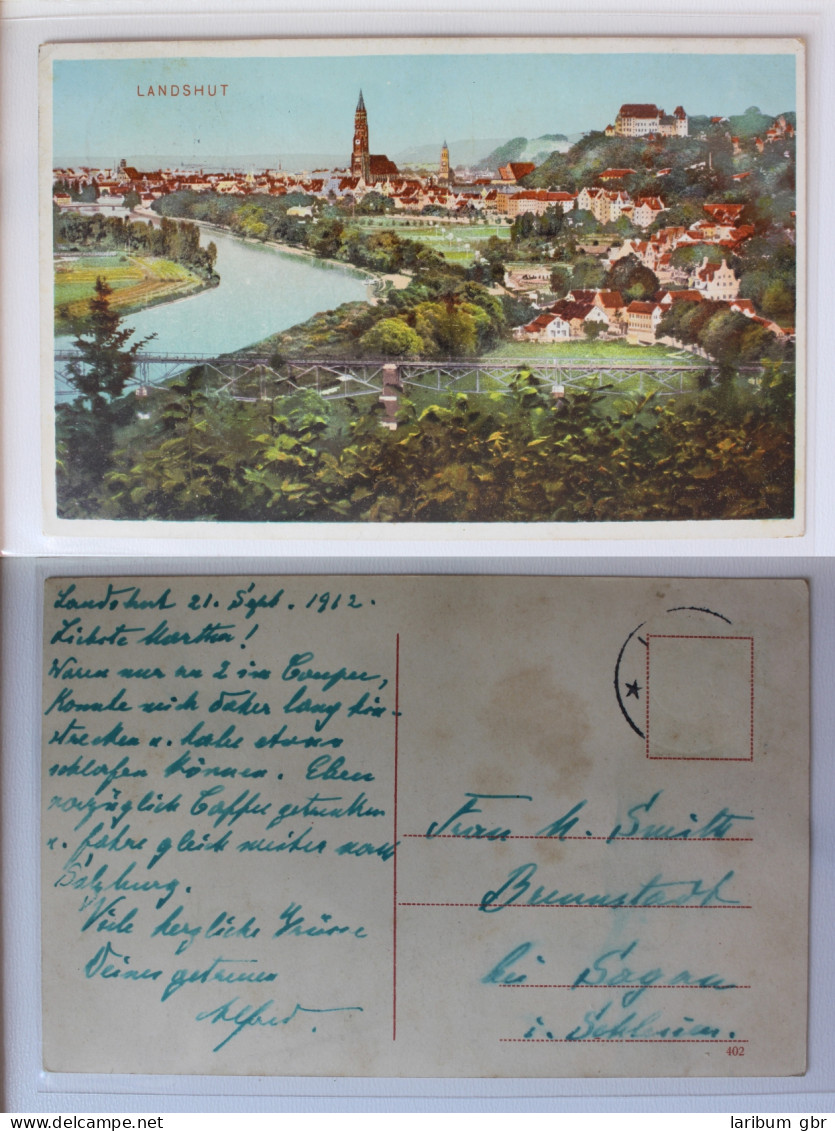 LANDSHUT
Landshut 21. Sept. 1912.
Liebste Martha!
Waren nur zu 2 im Coupee,
konnte mich daher lang hin-
strecken u. habe etwas
schlafen können. Eben
vorzüglich Caffee getrunken
u. fahre gleich weiter nach
Salzburg.
Viele herzliche Grüsse
Deines getreuen
Alfred.
Frau M. Smith
Brunnstadt
bei Sagan
i. Schlesien.
402
laribum gbr